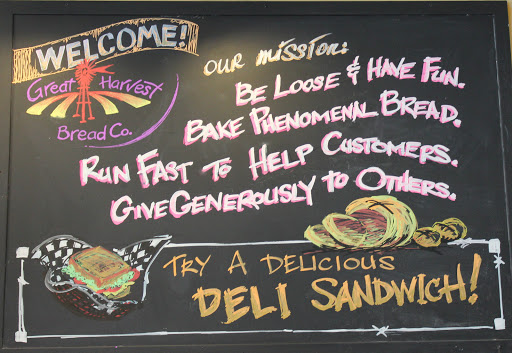 WELCOME!
Great Harvest
Bread Co.
OUR MISSION:
BE LOOSE & HAVE FUN.
BAKE PHENOMENAL BREAD.
RUN FAST TO HELP CUSTOMERS.
GIVE GENEROUSLY TO OTHERS.
TRY A DELICIOUS
DELI SANDWICH!